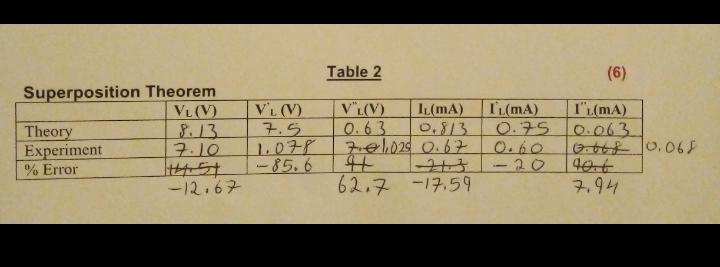 Table 2 (6)
Superposition Theorem
VL(V) V'L(V) V"L(V) IL(mA) I'L(mA) I"L(mA)
Theory 8.13 7.5 0.63 0.813 0.75 0.063
Experiment 7.10 1.078 7.0 1.025 0.67 0.60 0.668 0.068
% Error 14.51 -85.6 91 -21.3 -20 90.6
-12.67 62.7 -17.59 7.94